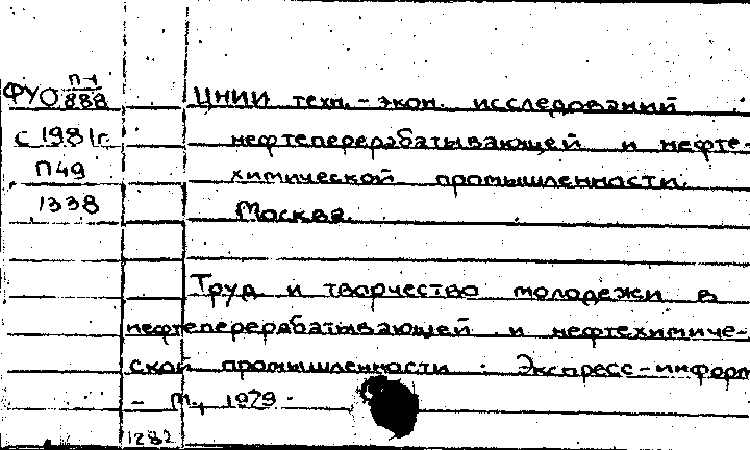 П-1
ФУО 888
ЦНИИ техн.-экон. исследований
с 1981г. нефтеперерабатывающей и нефте-
П49 химической промышленности.
1338 Москва.
Труд и творчество молодежи в
нефтеперерабатывающей и нефтехимиче-
ской промышленности. Экспресс-информ
- М., 1979.
1282